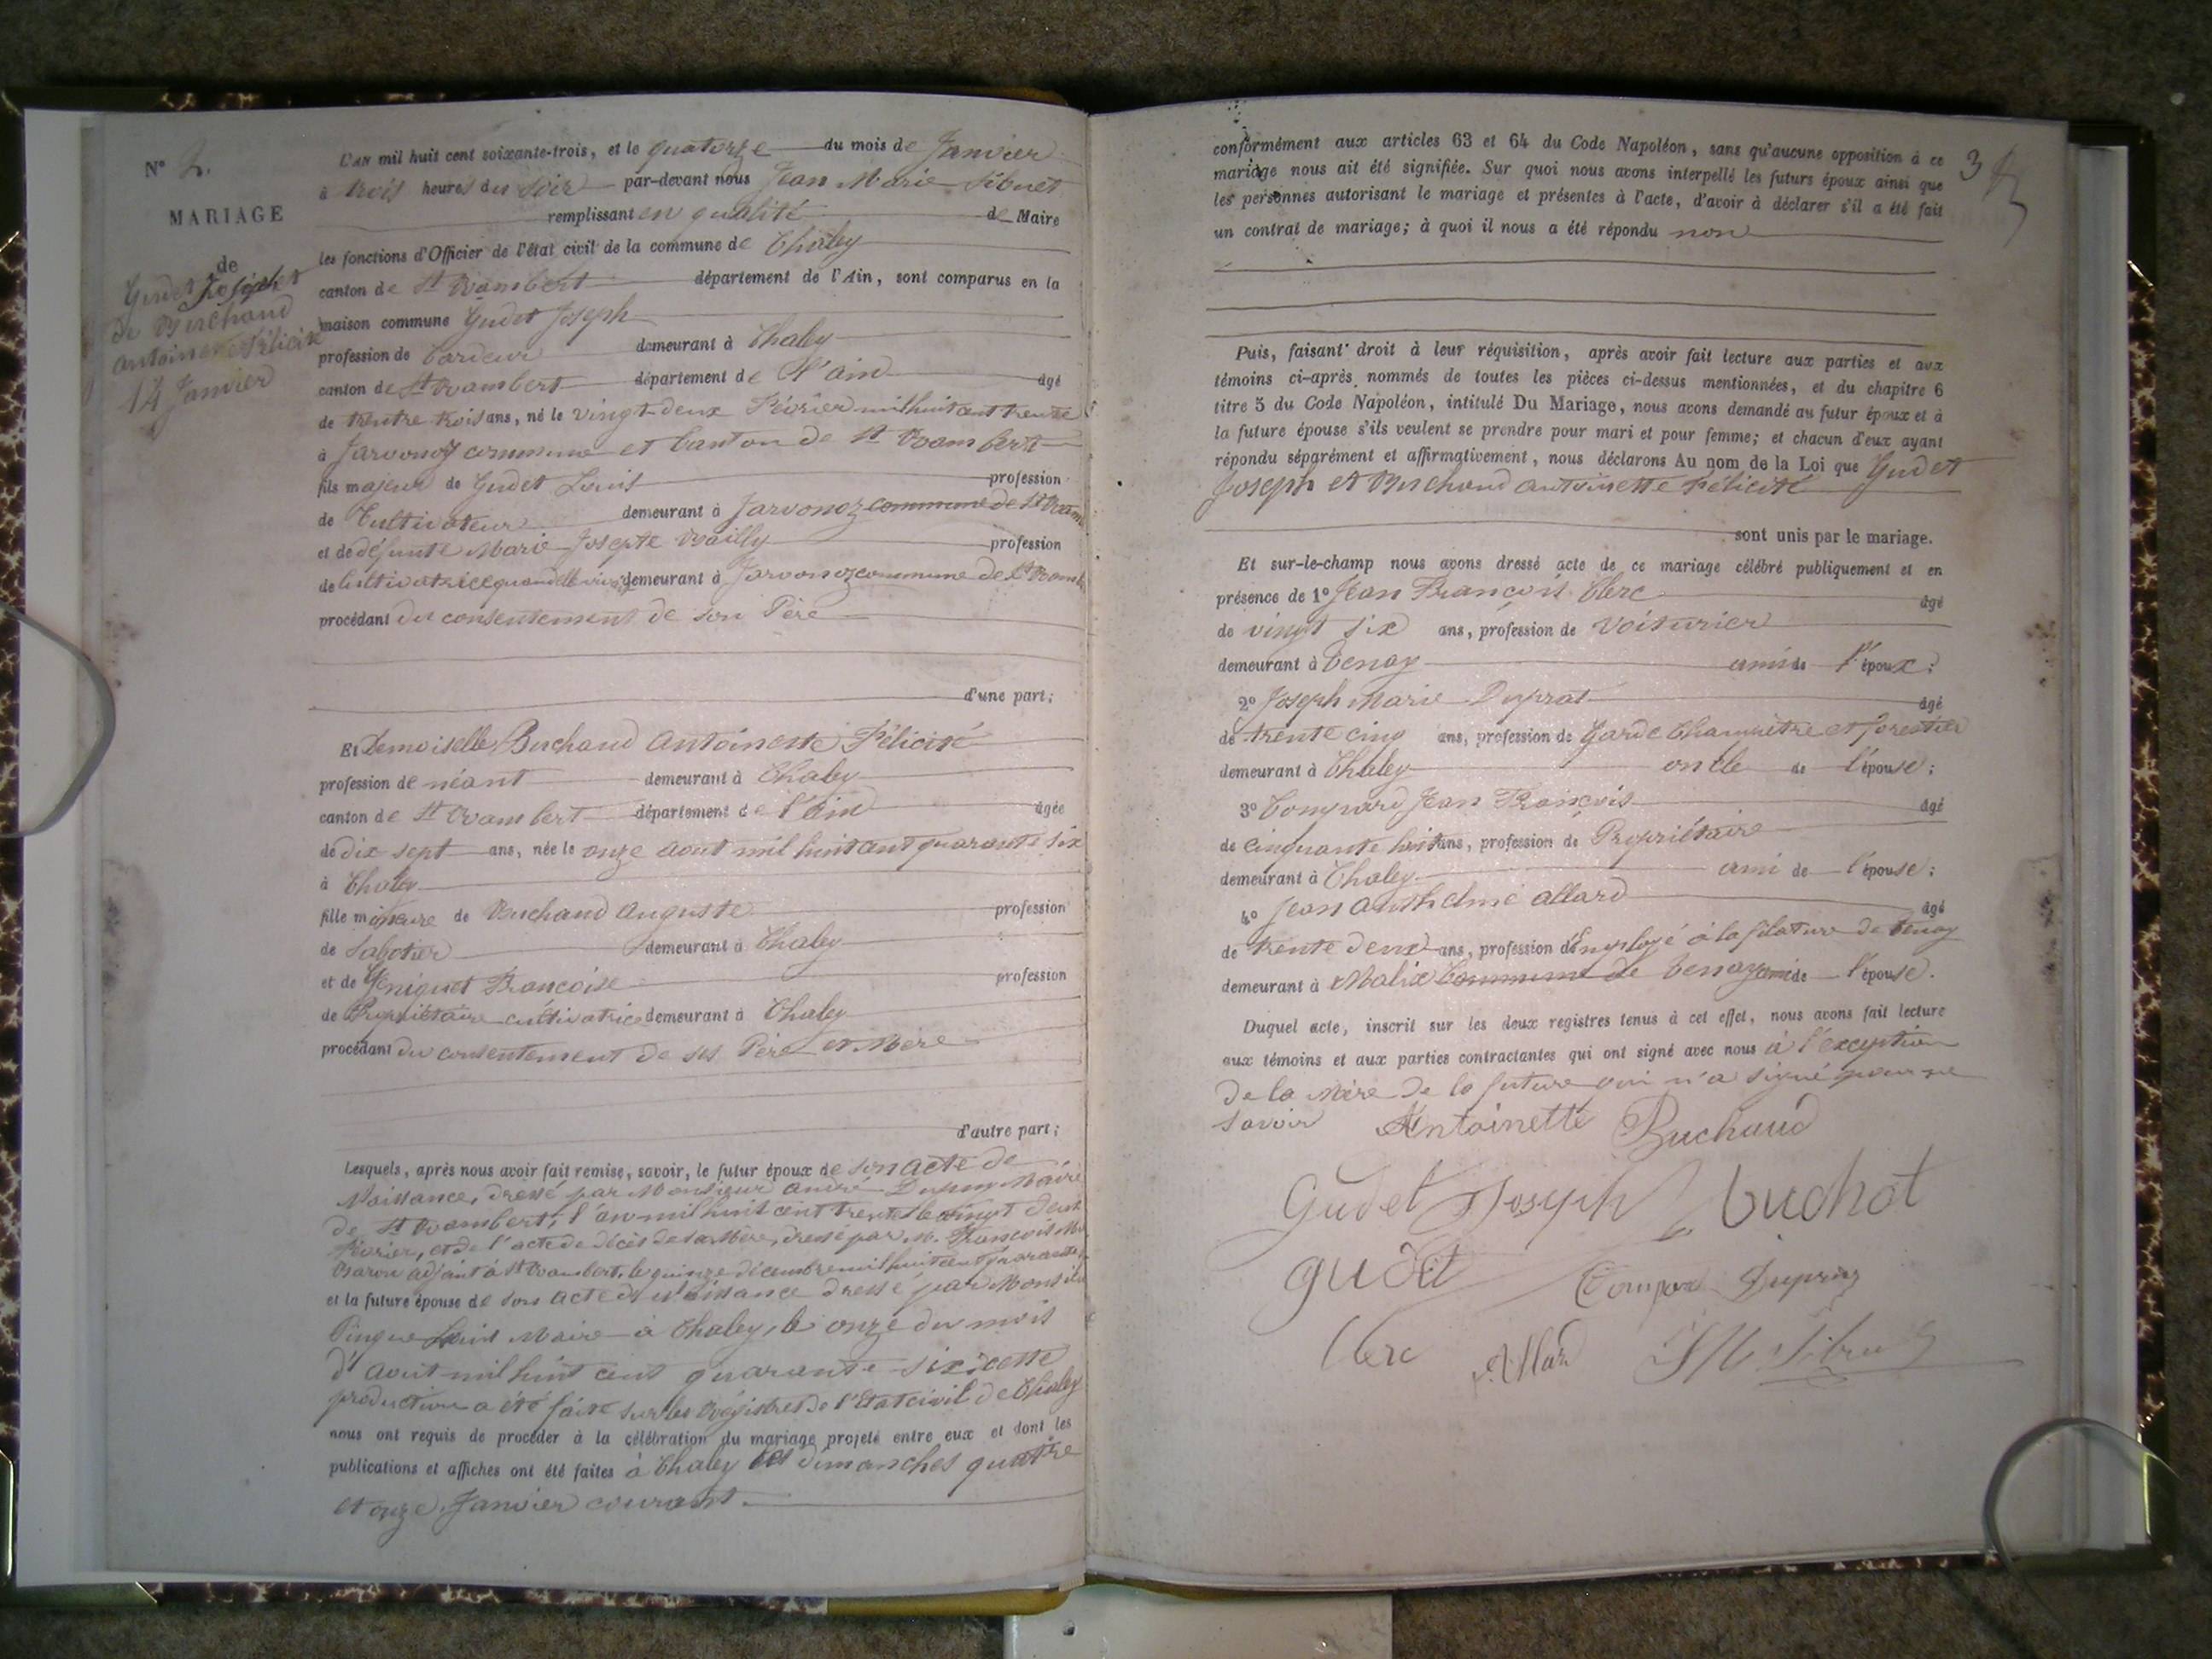 N° 2.
MARIAGE
de
Gudet Joseph et
de Buchaud
Antoinette Félicité
14 Janvier
L'AN mil huit cent soixante-trois, et le quatorze du mois de Janvier
à trois heures du soir par-devant nous Jean Marie Sibuet
remplissant en qualité de Maire
les fonctions d'Officier de l'état civil de la commune de Chaley
canton de St Rambert département de l'Ain, sont comparus en la
maison commune Gudet Joseph
profession de Cardeur demeurant à Chaley
canton de St Rambert département de l'ain âgé
de trentre trois ans, né le vingt-deux Février mil huit cent trente
à Javornoz commune et Canton de St Rambert
fils majeur de Gudet Louis profession
de Cultivateur demeurant à Javornoz commune de St Ram
et de défunte Marie Josepte Bailly profession
de Cultivatrice quand elle vivait demeurant à Javornoz commune de St Ramb
procédant du consentement de son Père
d'une part;
Et Demoiselle Buchaud Antoinette Félicité
profession de néant demeurant à Chaley
canton de St Rambert département de l'ain âgée
de dix sept ans, née le onze aout mil huit cent quarante six
à Chaley
fille mineure de Buchaud Auguste profession
de Sabotier demeurant à Chaley
et de Géniquet Françoise profession
de Propriétaire cultivatrice demeurant à Chaley
procédant du consentement de ses Père et Mère
d'autre part;
Lesquels, après nous avoir fait remise, savoir, le futur époux de son acte de
Naissance, dressé par Monsieur André Dupuy Maire
de St Rambert, l'an mil huit cent trente le vingt deux
Février, et de l'acte de décès de sa Mère, dressé par M. François
Baron adjoint à St Rambert, le quinze décembre mil huit cent quarante
et la future épouse de son acte de naissance dressé par Monsieur
Pingue Louis Maire à Chaley, le onze du mois
d'aout mil huit cent quarante six; cette
production a été faite sur les Régistres de l'Etat civil de Chaley
nous ont requis de procéder à la célébration du mariage projeté entre eux et dont les
publications et affiches ont été faites à Chaley les dimanches quatre
et onze Janvier courant.
3
conformément aux articles 63 et 64 du Code Napoléon, sans qu'aucune opposition à ce
mariage nous ait été signifiée. Sur quoi nous avons interpellé les futurs époux ainsi que
les personnes autorisant le mariage et présentes à l'acte, d'avoir à déclarer s'il a été fait
un contrat de mariage; à quoi il nous a été répondu non
Puis, faisant droit à leur réquisition, après avoir fait lecture aux parties et aux
témoins ci-après nommés de toutes les pièces ci-dessus mentionnées, et du chapitre 6
titre 5 du Code Napoléon, intitulé Du Mariage, nous avons demandé au futur époux et à
la future épouse s'ils veulent se prendre pour mari et pour femme; et chacun d'eux ayant
répondu séparément et affirmativement, nous déclarons Au nom de la Loi que Gudet
Joseph et Buchaud Antoinette Félicité
sont unis par le mariage.
Et sur-le-champ nous avons dressé acte de ce mariage célébré publiquement et en
présence de 1° Jean François Clerc âgé
de vingt six ans, profession de Voiturier
demeurant à Tenay ami de l'époux;
2° Joseph Marie Duprat âgé
de trente cinq ans, profession de Garde Champêtre et forestier
demeurant à Chaley oncle de l'épouse;
3° Compard Jean François âgé
de cinquante huit ans, profession de Propriétaire
demeurant à Chaley ami de l'épouse;
4° Jean Anthelme Allard âgé
de trente deux ans, profession d'Employé à la filature de Tenay
demeurant à Malix Commune de Tenay ami de l'épouse.
Duquel acte, inscrit sur les deux registres tenus à cet effet, nous avons fait lecture
aux témoins et aux parties contractantes qui ont signé avec nous à l'exception
de la Mère de la future qui n'a signé pour ne
savoir Antoinette Buchaud
Gudet Joseph Buchot
gudet
Clerc Allard